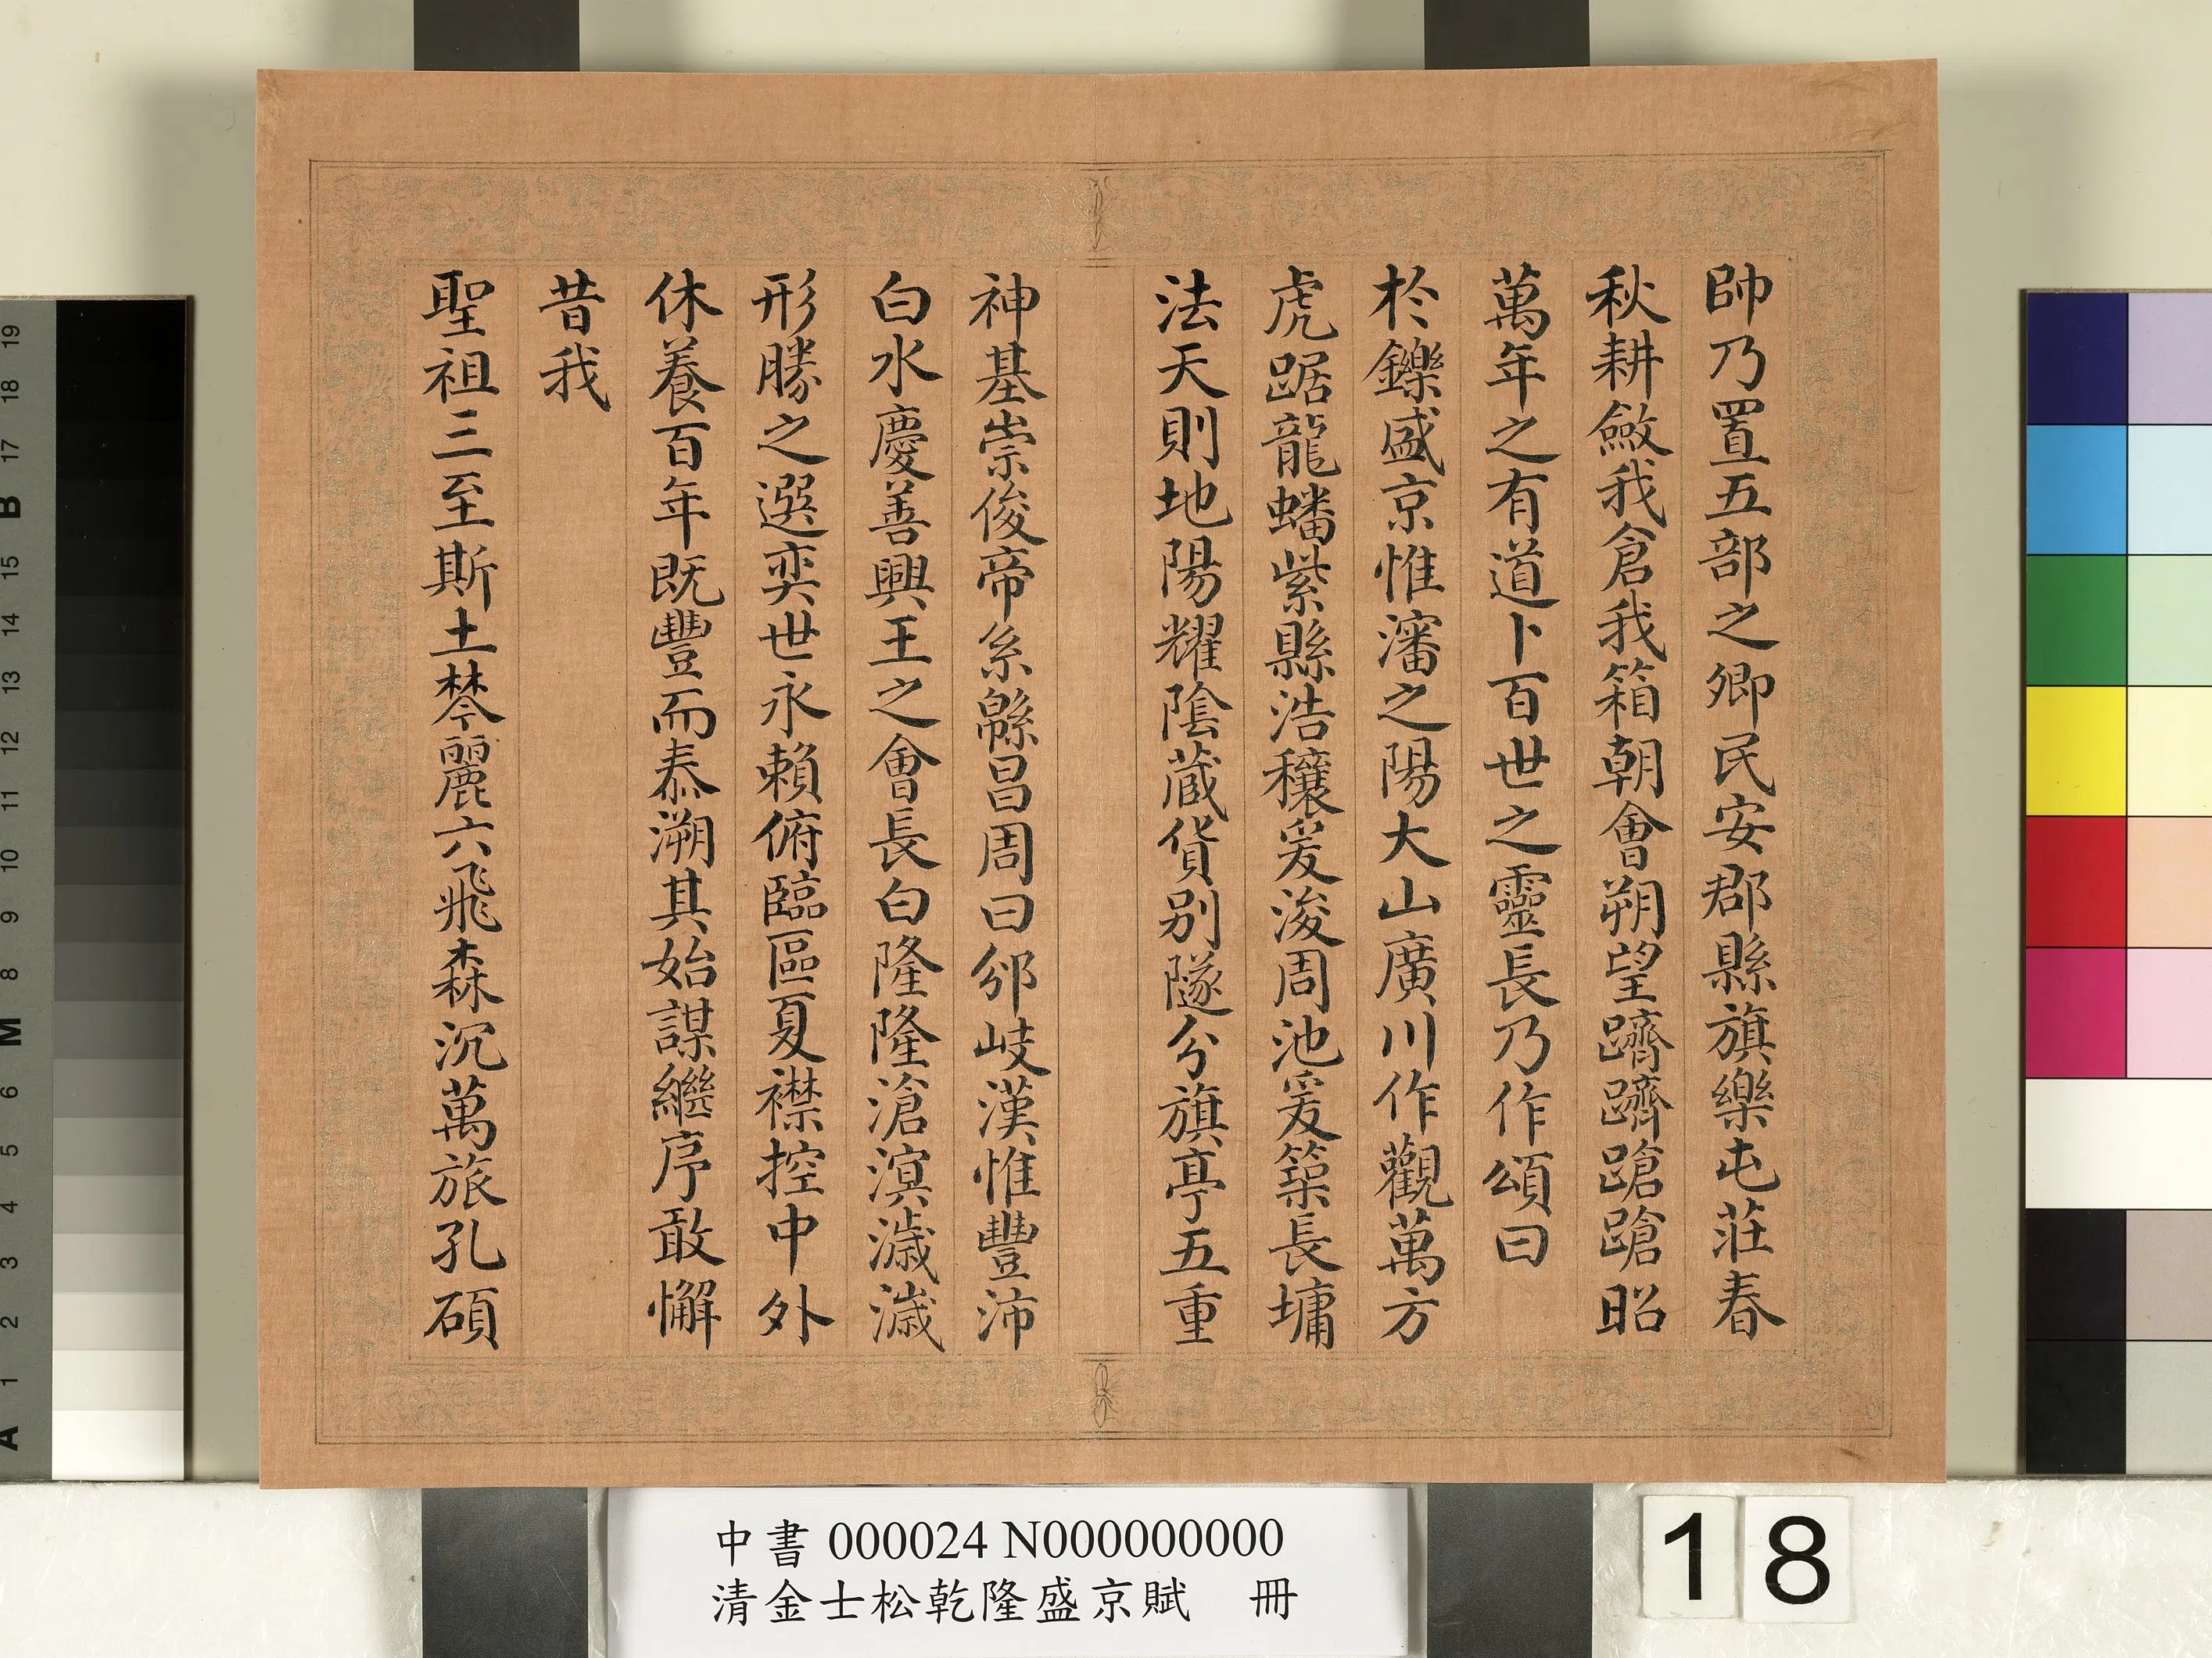 帥乃置五部之卿民安郡縣旗樂屯莊春
秋耕斂我倉我箱朝會朔望躋躋蹌蹌昭
萬年之有道卜百世之靈長乃作頌曰
於鑠盛京惟瀋之陽大山廣川作觀萬方
虎踞龍蟠紫縣浩穰爰浚周池爰築長墉
法天則地陽耀陰蔵貨別隧分旗亭五重
神基崇俊帝系緜昌周曰邠岐漢惟豐沛
白水慶善興王之會長白隆隆滄溟濊濊
形勝之選奕世永賴俯臨區夏襟控中外
休養百年既豐而泰溯其始謀繼序敢懈
昔我
聖祖三至斯土棽麗六飛森沉萬旅孔碩
中書 000024 N000000000
清金士松乾隆盛京賦 冊
18
19
18
17
B
16
15
14
13
12
11
10
9
8
M
7
6
5
4
3
2
1
A